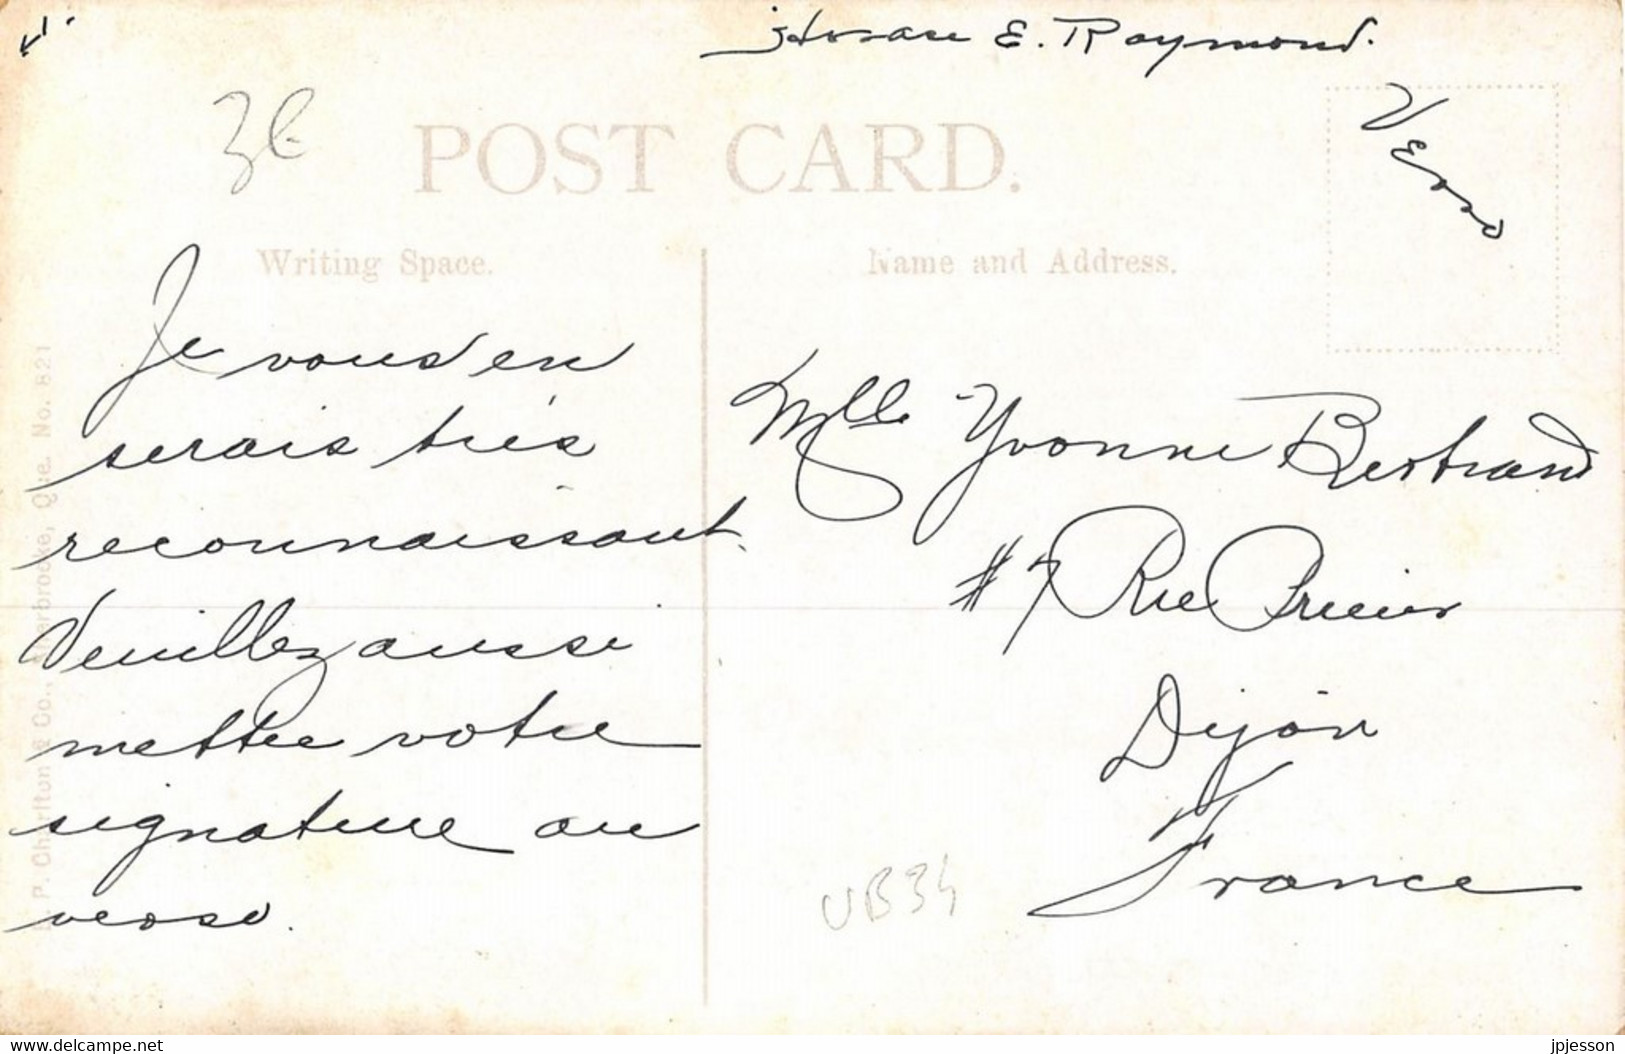 E. Raymond.
Verso
3€
POST CARD.
Writing Space.
Name and Address.
Je vous en
serais très
reconnaissant.
Veuillez aussi
mettre votre
signature au
verso.
Mlle Yvonne Bertrand
#7 Rue
Dijon
France
UB34
P. Charlton & Co., Sherbrooke, Que. No. 821
delcampe.net
jpjesson